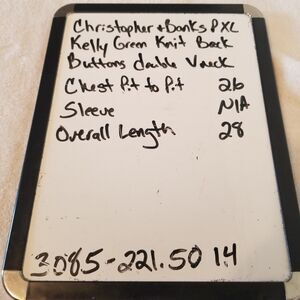 Christopher + Banks PXL
Kelly Green Knit Back
Buttons double V neck
Chest Pit to Pit 26
Sleeve N/A
Overall Length 28
3085-221.50 14